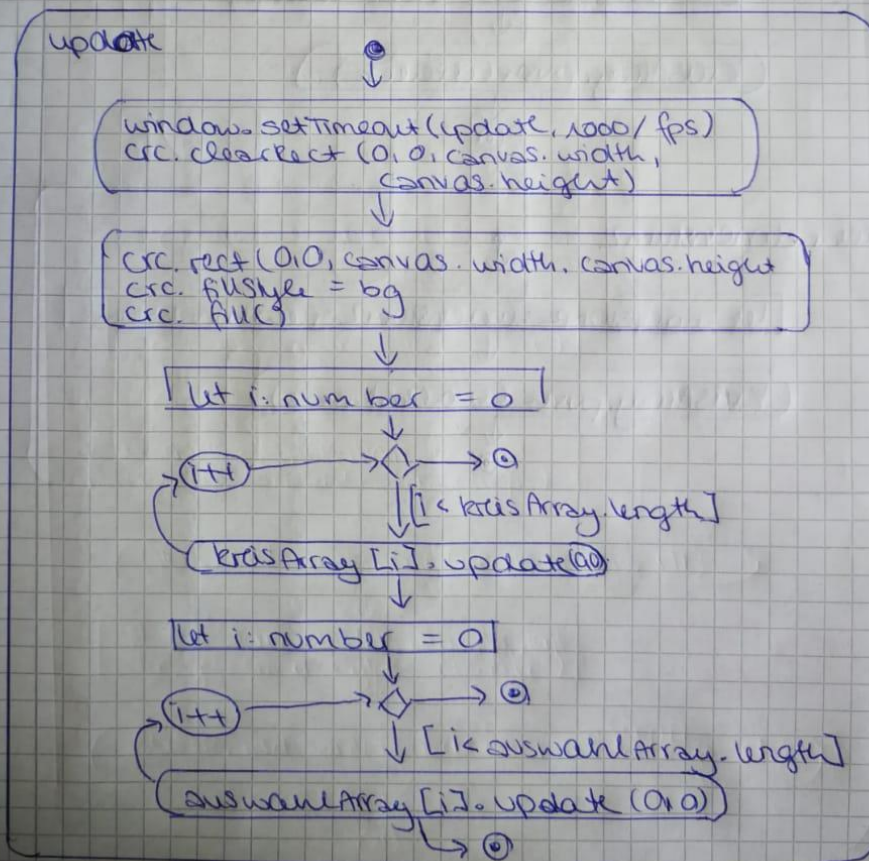 update
window.setTimeout(update, 1000/fps)
crc.clearRect(0,0,canvas.width,
canvas.height)
crc.rect(0,0,canvas.width.canvas.height
crc.fillStyle = bg
crc.fill()
let i: number = 0
i++
[i < kreisArray.length]
kreisArray[i].update(0,0)
let i: number = 0
i++
[i < auswahlArray.length]
auswahlArray[i].update(0,0)